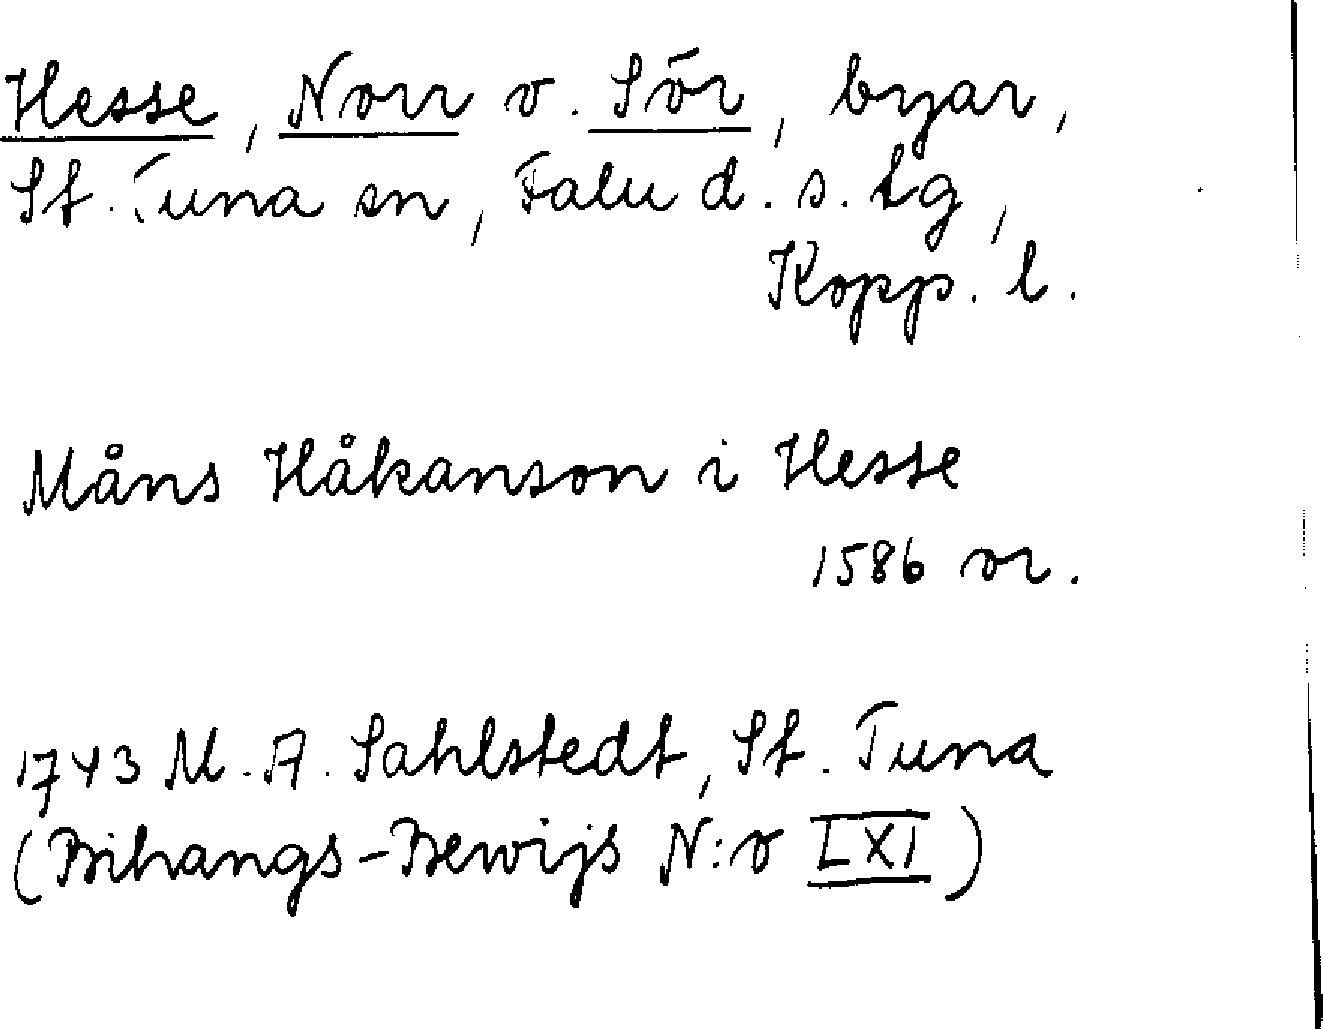 Hesse, Norr o. Sör, byar,
St. Tuna sn, Falu d. s. lg,
Kopp. l.
Måns Håkanson i Hesse
1586 or.
1743 M. A. Sahlstedt, St. Tuna
(Bihangs-Bewijs N:o LXI)